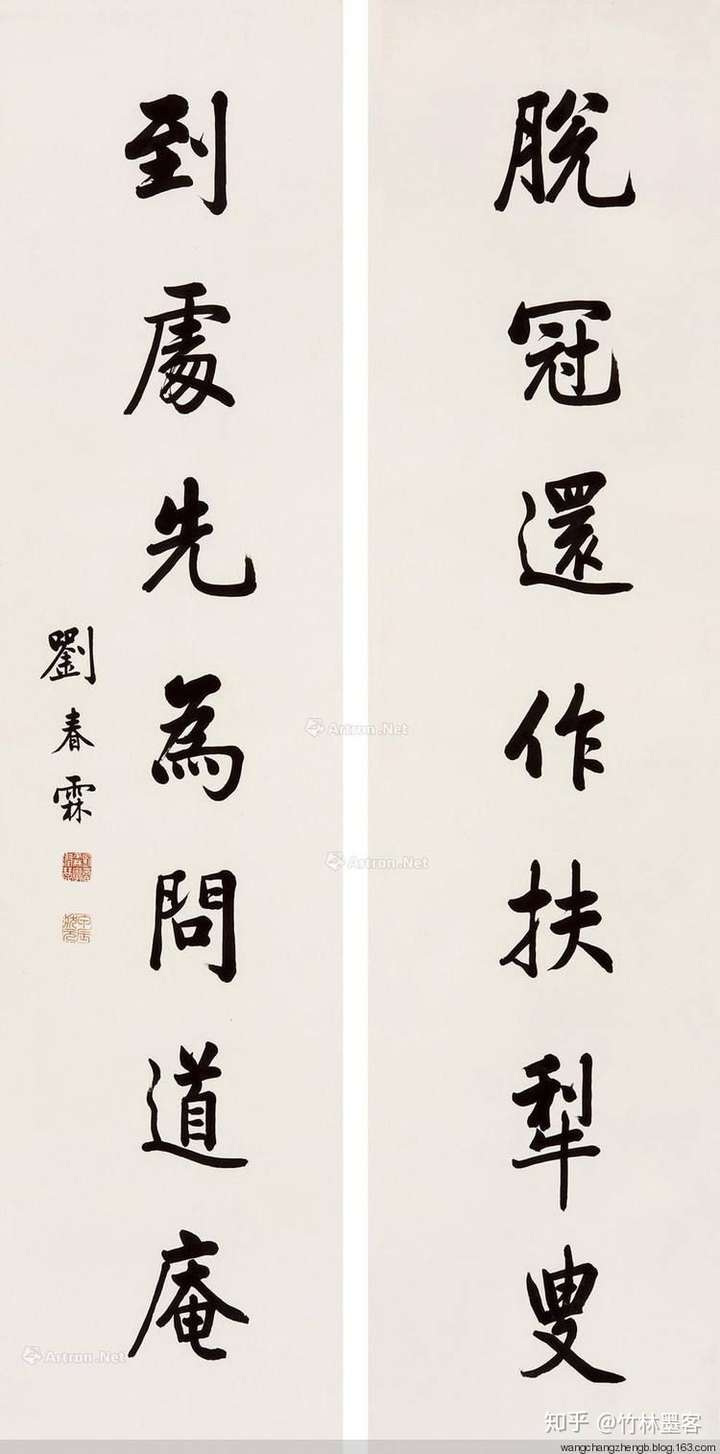 脫冠還作扶犁叟
到處先為問道庵
劉春霖
Artron.Net
Artron.Net
Artron.Net
知乎 @竹林墨客
wangchangzhengb.blog.163.com